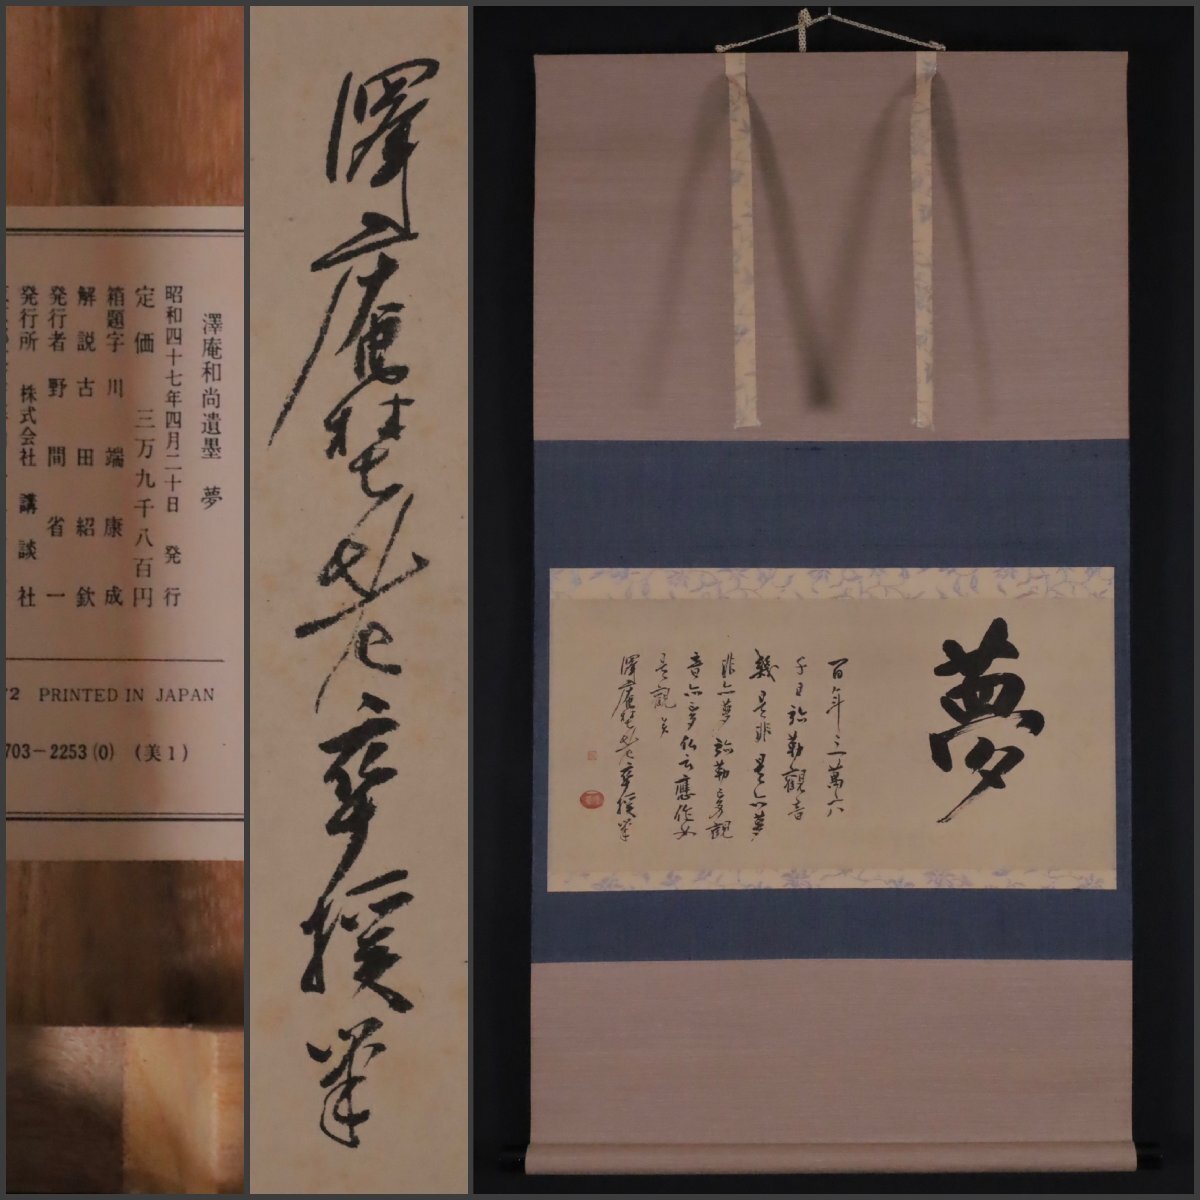 澤庵和尚遺墨 夢
昭和四十七年四月二十日 発行
定価 三万九千八百円
箱題字 川端康成
解説 古田紹欽
発行者 野間省一
発行所 株式会社 講談社
PRINTED IN JAPAN
703-2253 (0) (美1)
澤庵
老卒援筆
夢
百年三萬六
千日弥勒観音
幾是非是亦夢
非亦夢弥勒夢観
音亦夢仏云應作如
是観矣
澤庵
老卒援筆